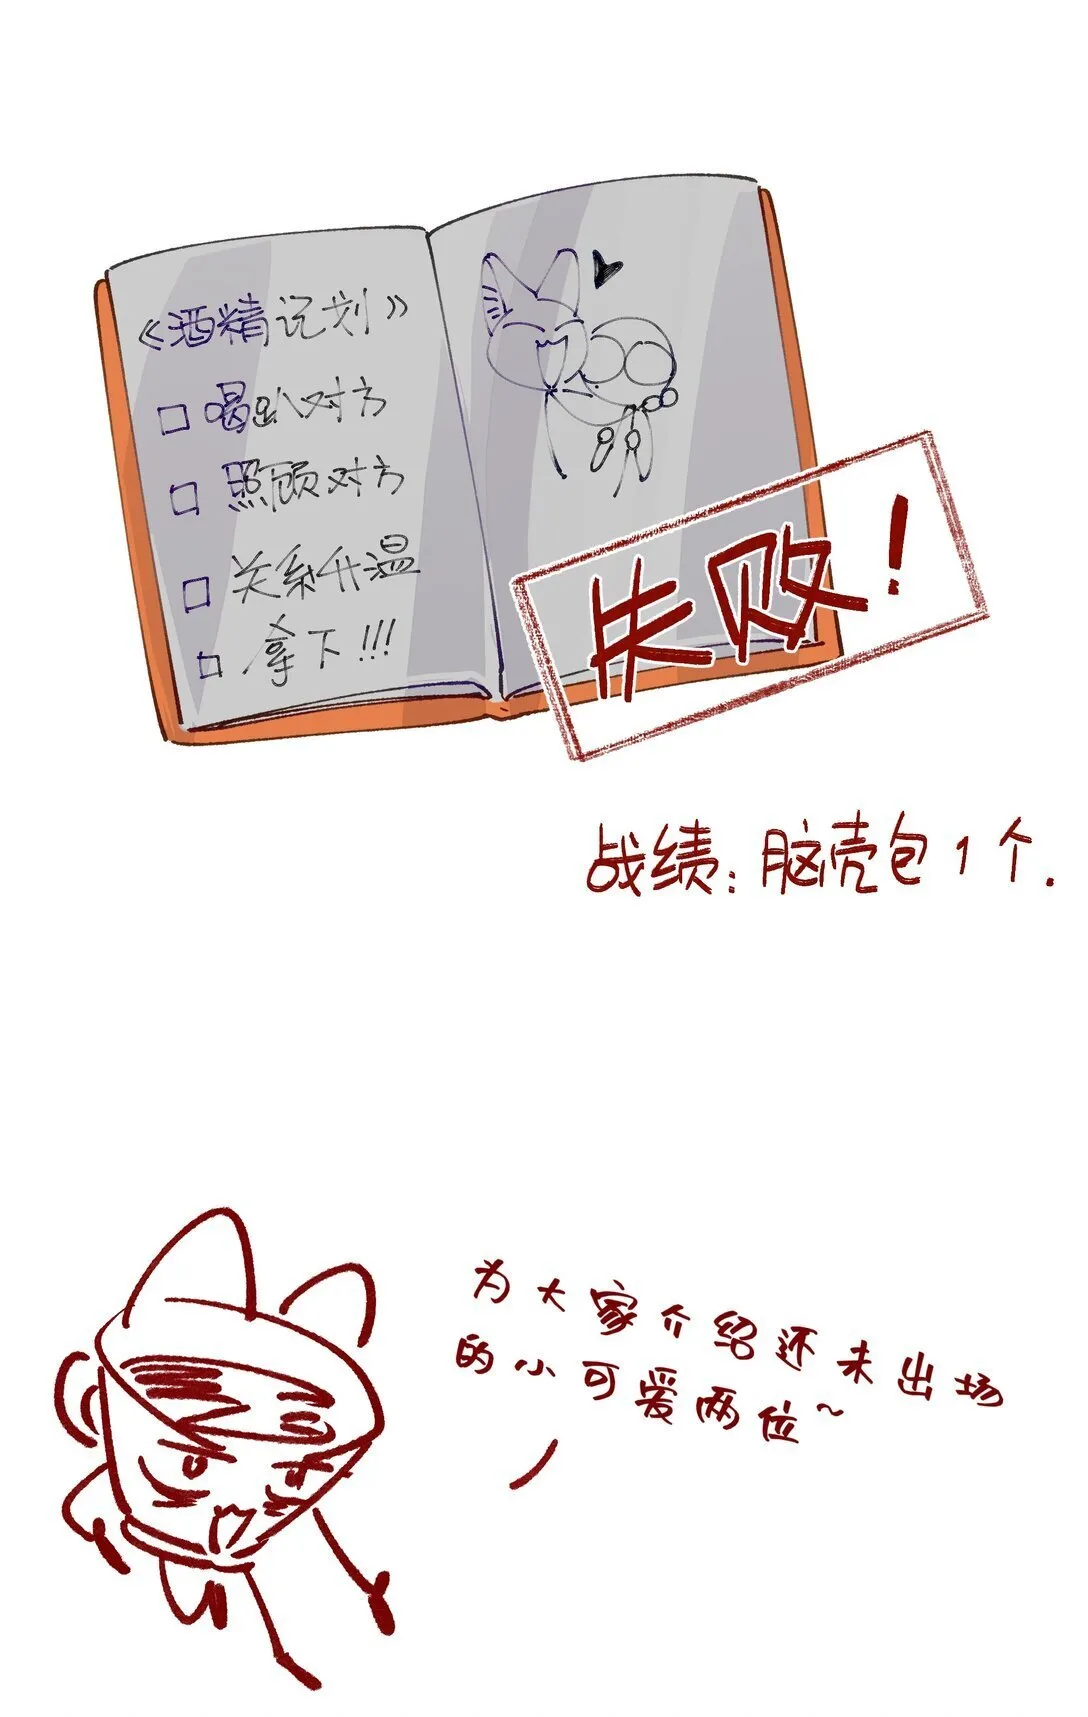 《酒精记划》
喝趴对方
照顾对方
关系升温
拿下!!!
失败!
战绩:脑壳包1个.
为大家介绍还未出场
的小可爱两位~